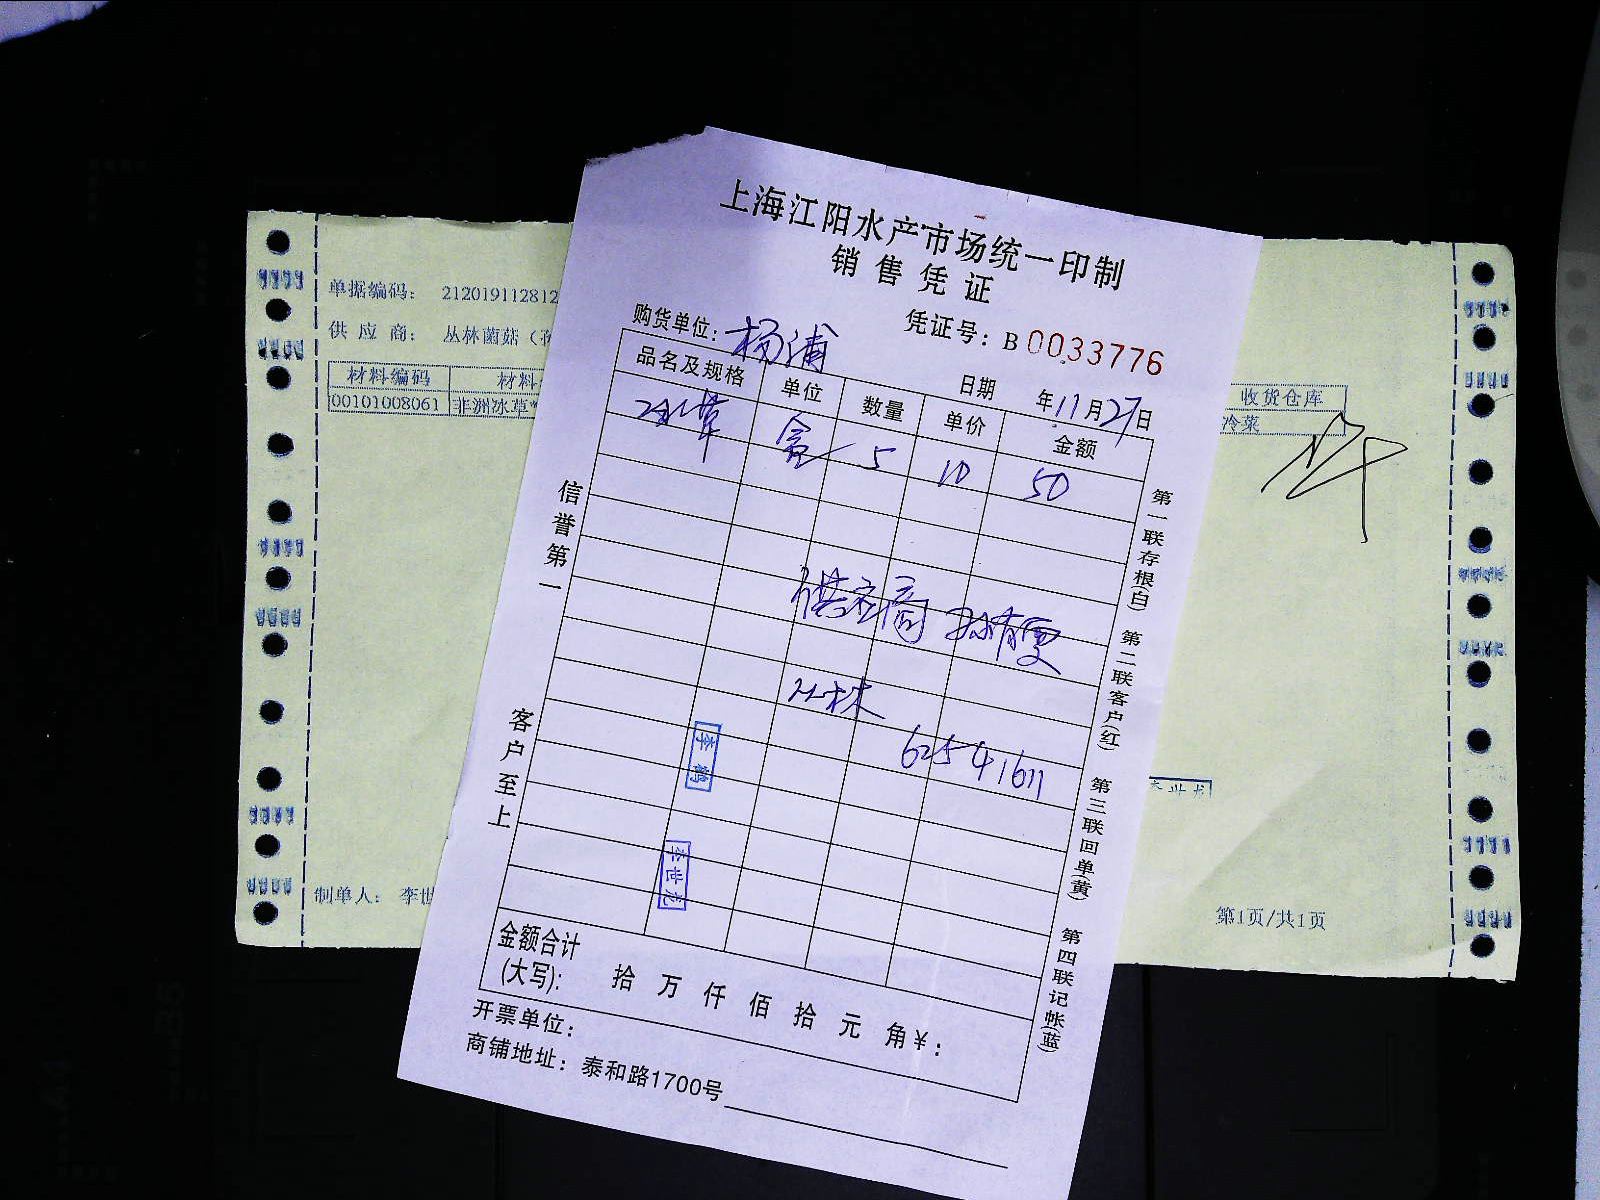 上海江阳水产市场统一印制
销售凭证
购货单位：杨浦
凭证号：B 0033776
日期 年11月27日
品名及规格 单位 数量 单价 金额
冰草 盒 5 10 50
供应商 孙有雯
丛林
62541611
李鹤
李世龙
信誉第一
客户至上
第一联存根(白) 第二联客户(红) 第三联回单(黄) 第四联记帐(蓝)
金额合计
(大写)： 拾 万 仟 佰 拾 元 角￥：
开票单位：
商铺地址：泰和路1700号
单据编码： 212019112812
供应商： 丛林菌菇（
材料编码 材料
00101008061 非洲冰草*
收货仓库
冷菜
制单人： 李世
第1页/共1页